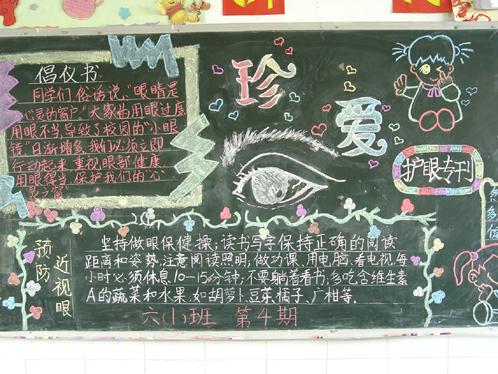 倡仪书
同学们俗话说:"眼睛是
心灵的窗户"大家的用眼过度
用眼不当导致了校园的"小眼
镜"日渐增多,我们必须立即
行动起来重视眼部健康
用眼得当,保护我们的"心
珍
爱
护眼专刊
预防近视眼
坚持做眼保健操;读书写字保持正确的阅读
距离和姿势,注意阅读照明,做功课、用电脑、看电视,每
小时必须休息10—15分钟,不要躺着看书;多吃含维生素
A的蔬菜和水果,如胡萝卜、豆菜、橘子、广柑等。
六(1)班 第4期